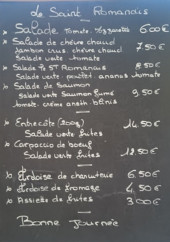 Le Saint Romanais
Salade tomate 6,00€
Salade de chèvre chaud 7.50€
Jambon crus, chèvre chaud
Salade verte tomate
Salade St Romanais 8.50€
Salade verte poulet ananas tomate
Salade de Saumon
Salade verte Saumon fumé 9,50€
tomate crème aneth
Entrecôte (200g) 14.50€
Salade verte frites
Carpaccio de boeuf
Salade verte frites 12.50€
Ardoise de charcuterie 6.50€
Ardoise de fromage 4,50€
Assiette de frites 3,00€
Bonne Journée